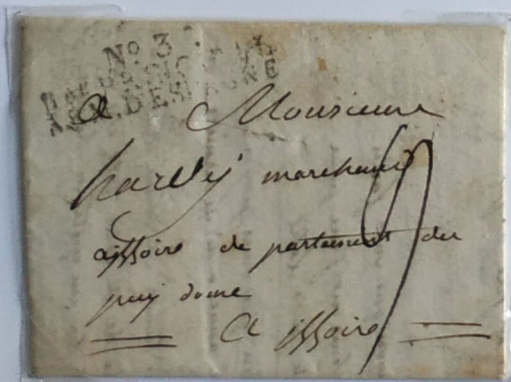 No. 3
ARM. D'ESPAGNE
a Monsieur
marchand
aissoire de partement du
puy dome
A issoire
9